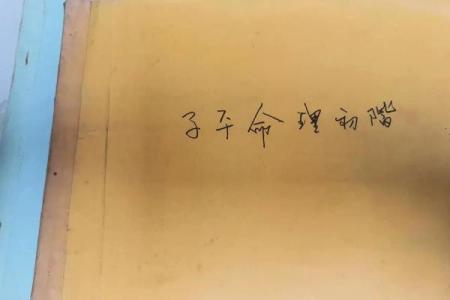 子平命理初階